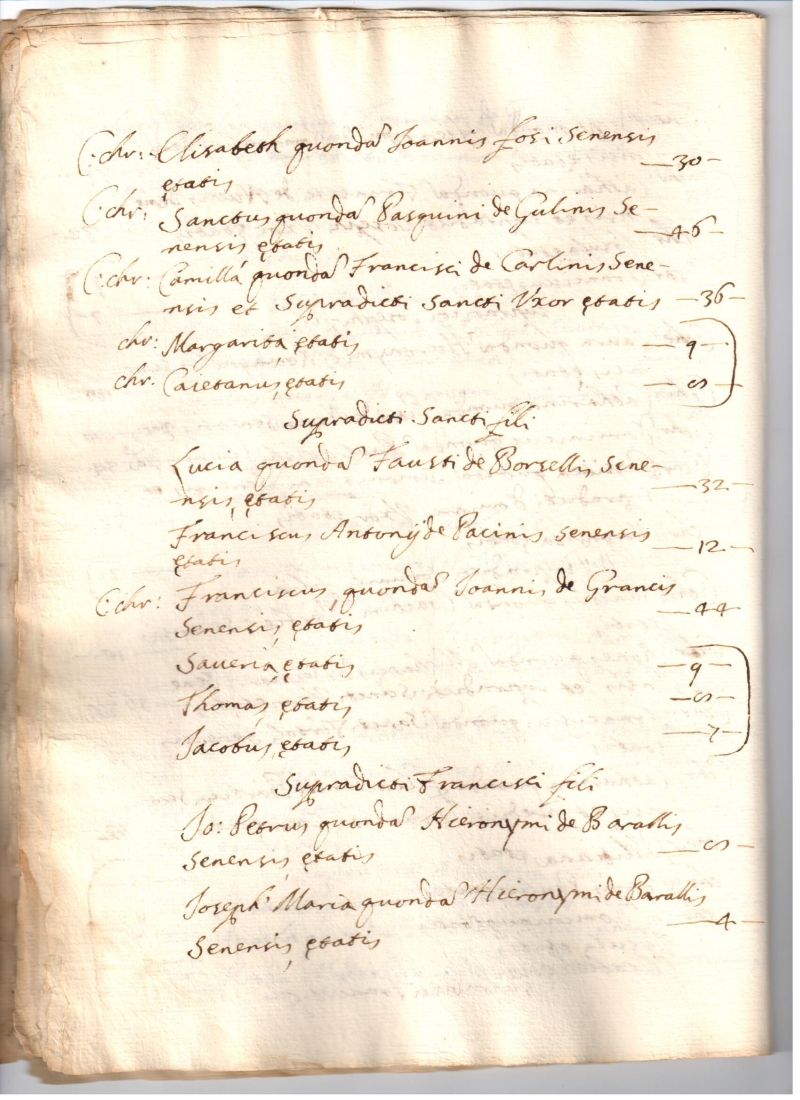 C. chr: Elisabeth quonda~ Joannis fosi senensis
ętatis —30—
C. chr: Sanctus quonda~ Pasquini de Gulinis Se-
nensis ętatis —46—
C. chr: Camilla quonda~ Francisci de Carlinis Sene-
nsis et Supradicti Sancti Vxor ętatis —36—
chr: Margarita ętatis —9—
chr. Caietanus ętatis
Supradicti Sancti fili
Lucia quonda~ Fausti de Borsellis Sene-
nsis ętatis —32—
Franciscus Antonij de Pacinis senensis
ętatis —12—
C. chr: Franciscus quonda~ Joannis de Grancis
Senensis ętatis —44—
Saueria ętatis —9—
Thomas ętatis
Jacobus ętatis —7—
Supradicti Francisci fili
Jo: Petrus quonda~ Hieronymi de Barallis
Senensis ętatis
Joseph Maria quonda~ Hieronymi de Barallis
Senensis ętatis —4—